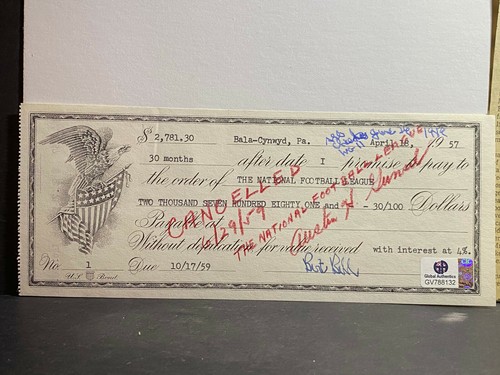 $ 2,781.30 Bala-Cynwyd, Pa. April 18, 1957
30 months after date I promise to pay to
the order of THE NATIONAL FOOTBALL LEAGUE
TWO THOUSAND SEVEN HUNDRED EIGHTY ONE and - 30/100 Dollars
Payable at
Without defalcation for value received with interest at 4%.
No. 1 Due 10/17/59
U.S. Bond
Bert Bell
CANCELLED
THE NATIONAL FOOTBALL LEAGUE
Austin H. Gunsel
Global Authentics
GV788132